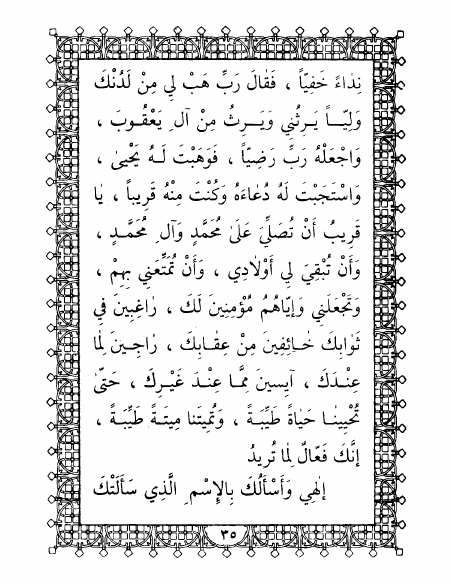 نِدٰاءً خَفِيّاً ، فَقٰالَ رَبِّ هَبْ لِي مِنْ لَدُنْكَ
وَلِيّـــاً يَـرِثُنِي وَيَـــرِثُ مِنْ آلِ يَعْقُـوبَ ،
وَاجْعَلْهُ رَبِّ رَضِيّاً ، فَوَهَبْتَ لَـهُ يَحْيىٰ ،
وَاسْتَجَبْتَ لَهُ دُعٰاءَهُ وَكُنْتَ مِنْهُ قَرِيباً ، يٰا
قَرِيبُ أَنْ تُصَلِّيَ عَلىٰ مُحَمَّدٍ وَآلِ مُحَمَّـدٍ ،
وَأَنْ تُبْقِيَ لِي أَوْلٰادِي ، وَأَنْ تُمَتِّعَنِي بِهِمْ ،
وَتَجْعَلَنِي وَإِيّٰاهُمْ مُؤْمِنِينَ لَكَ ، رٰاغِبِينَ فِي
ثَوٰابِكَ خٰـائِفِينَ مِنْ عِقٰـابِكَ ، رٰاجِـينَ لِمٰا
عِنْـدَكَ ، آيِسِينَ مِمّٰـا عِنْـدَ غَيْـرِكَ ، حَتّىٰ
تُحْيِينٰـا حَيٰاةً طَيِّبَـةً ، وَتُمِيتَنٰا مِيتَـةً طَيِّبَـةً ،
إِنَّكَ فَعّٰالٌ لِمٰا تُرِيدُ
إِلٰهِي وَأَسْأَلُكَ بِالإِسْمِ الَّذِي سَأَلَتْكَ
٣٥